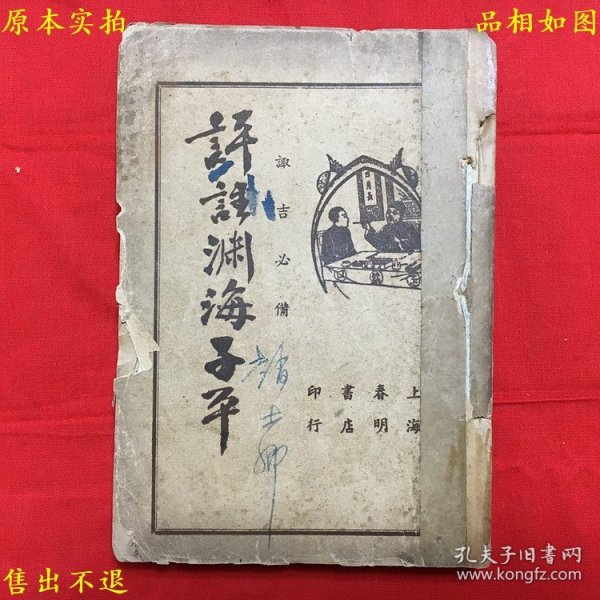 原本实拍
品相如图
評註渊海子平
諏吉必備
上海
春明
書店
印行
售出不退
孔夫子旧书网
www.kongfz.com